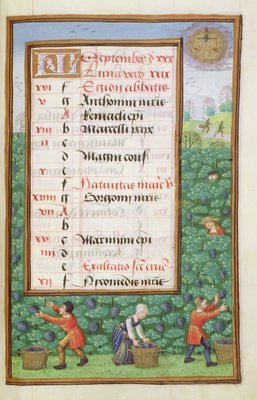 KL Septembre d xxx
Luna vero xxix
xvi f Egidii abbatis
v g Anthonini mris
A Remacli epi
xiii b Marcelli pape
ii c
d Magni conf
x e
f Nativitas marie v
xviii g Gorgonii mris
vii A
b
xv c Maximini epi
iiii d
e Exaltatio sce cruc
xii f Nicomedis mris